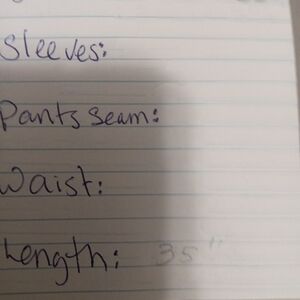 Sleeves:
Pants seam:
Waist:
Length: 35"